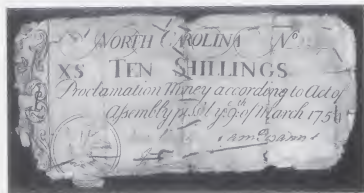 NORTH CAROLINA No
XS TEN SHILLINGS
Proclamation Money according to Act of
Assembly ye 9th of March 1754